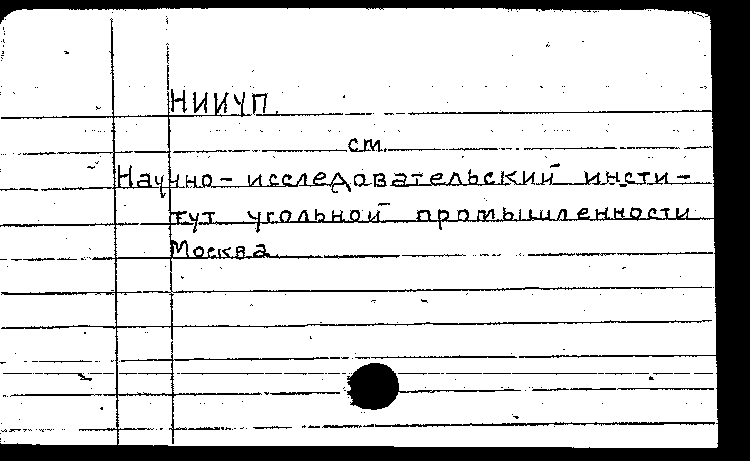 НИИУП.
см.
Научно-исследовательский инсти-
тут угольной промышленности
Москва